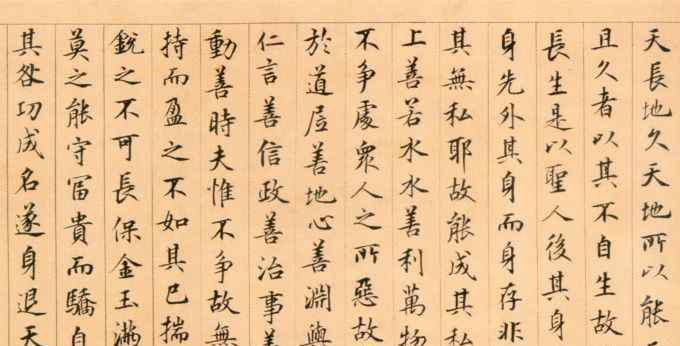 天長地久天地所以能
且久者以其不自生故
長生是以聖人後其身
身先外其身而身存非
其無私耶故能成其私
上善若水水善利萬物
不争處衆人之所惡故
於道居善地心善淵與
仁言善信政善治事善
動善時夫惟不争故無
持而盈之不如其已揣
銳之不可長保金玉滿
莫之能守冨貴而驕自
其咎功成名遂身退天